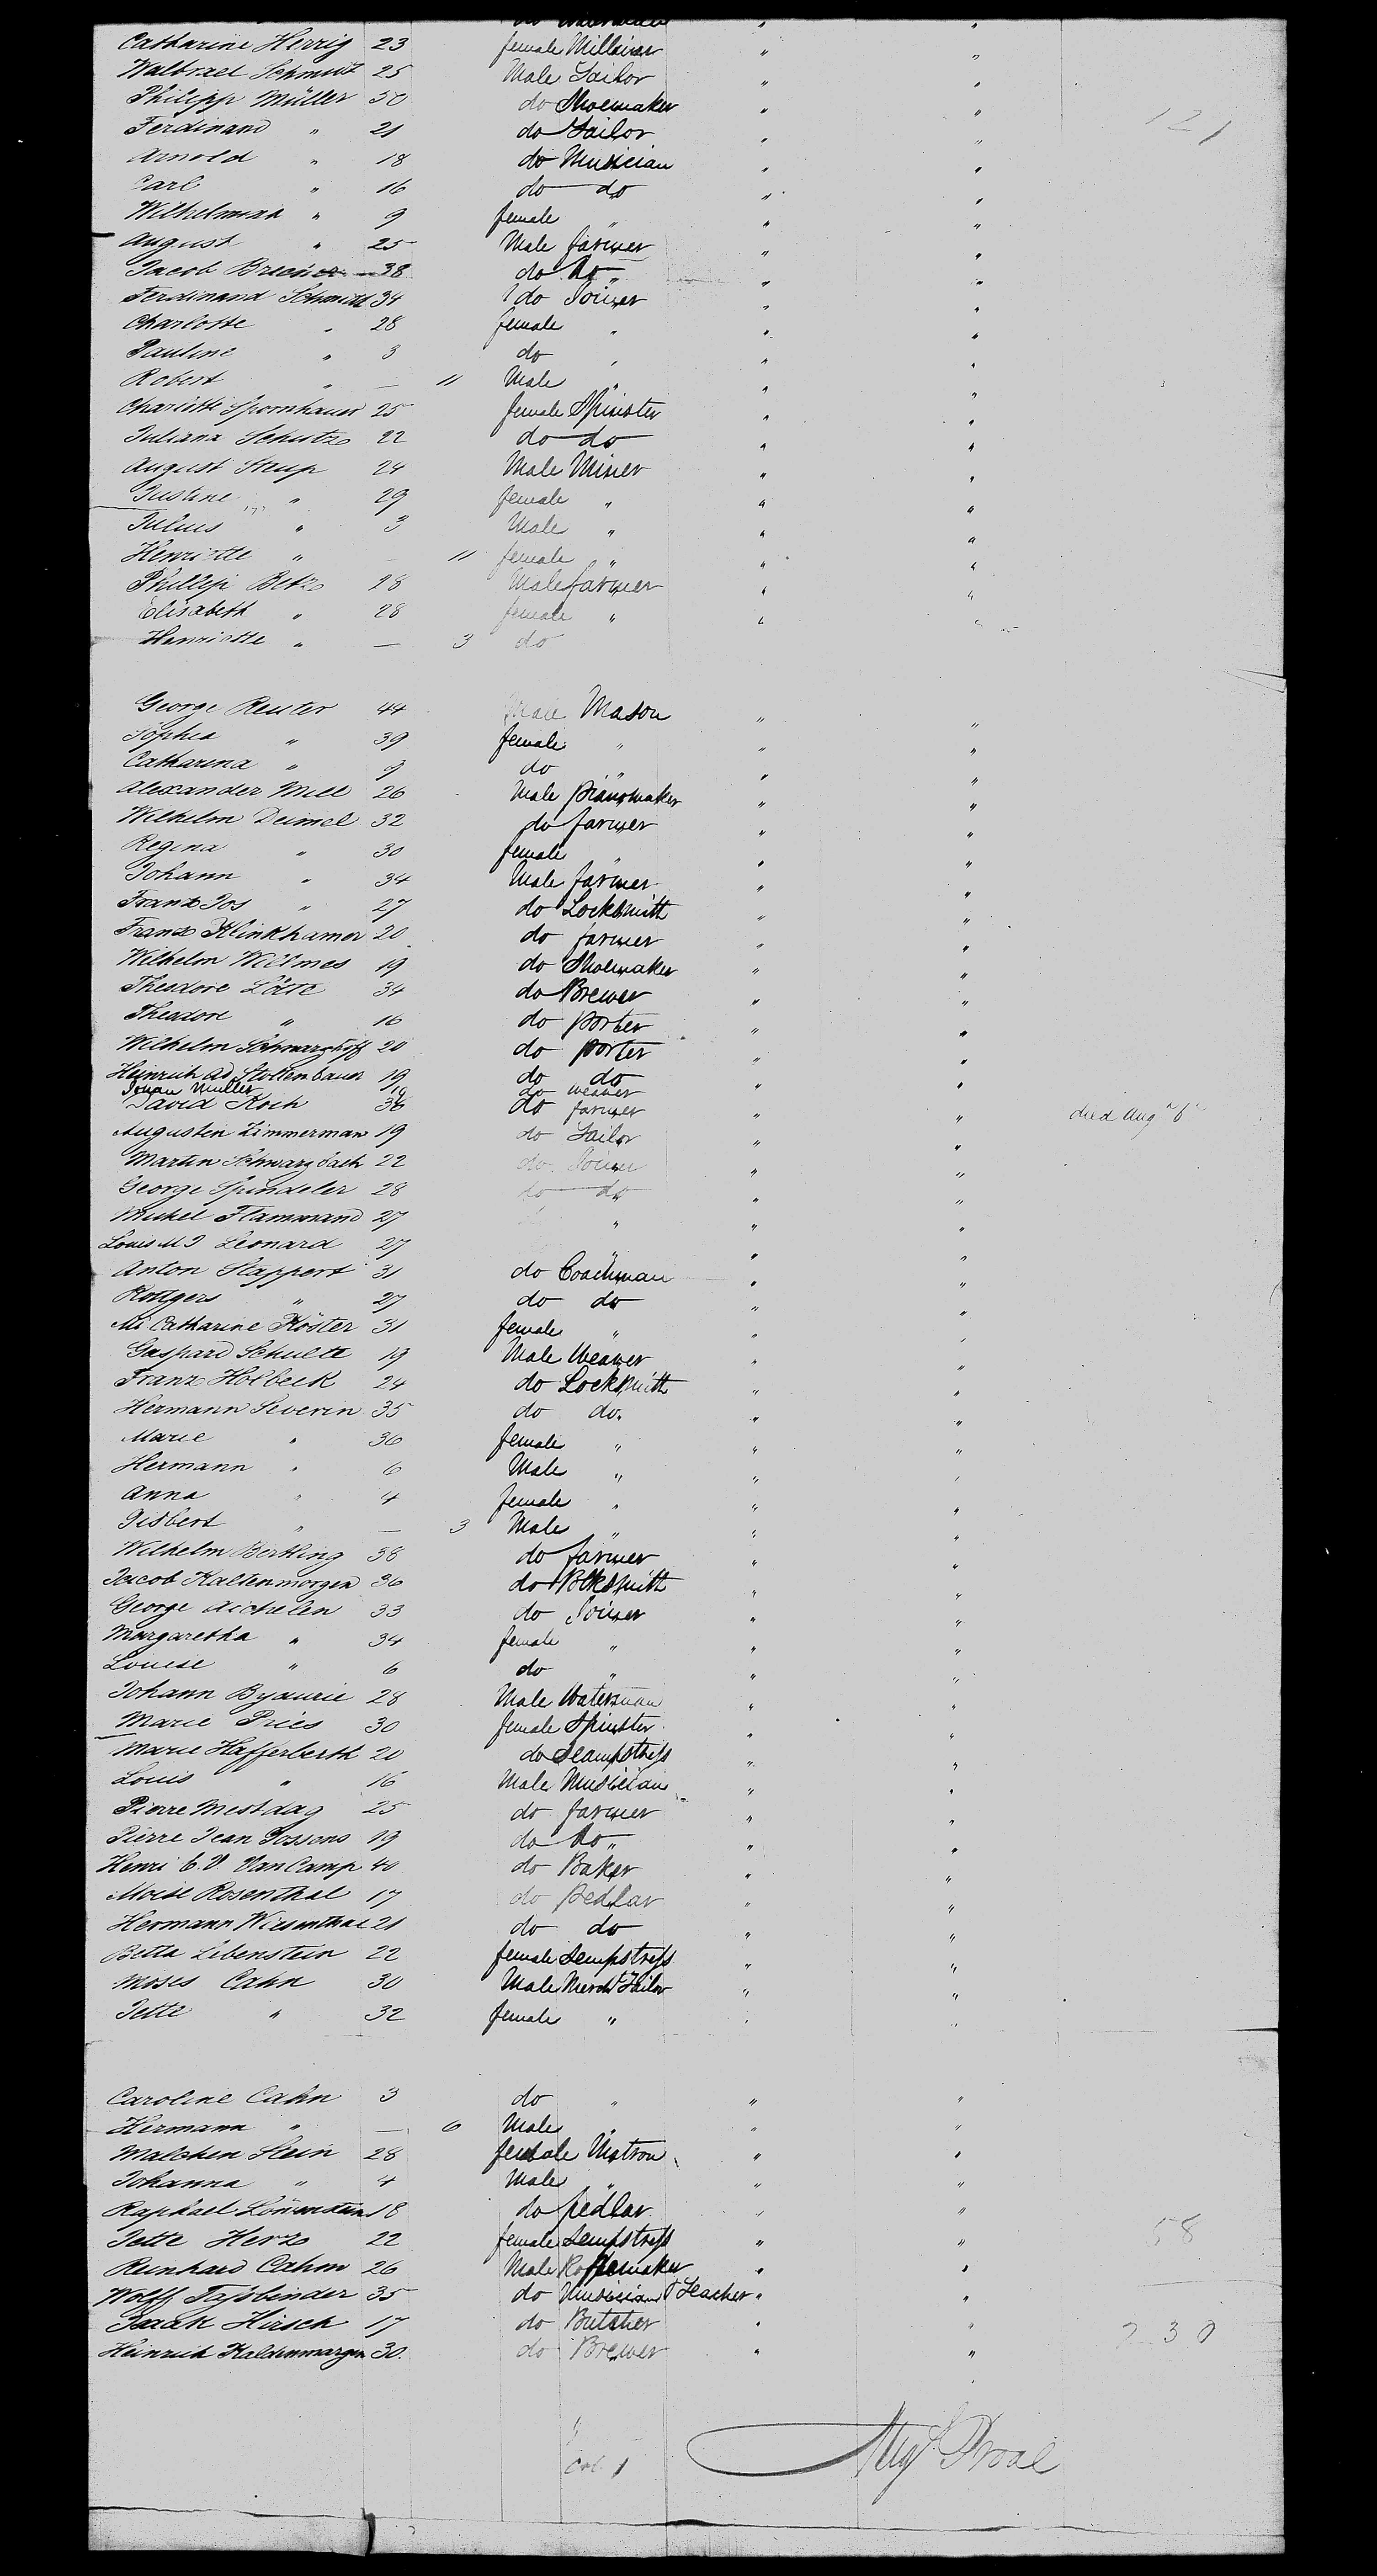 do Waterman " "
Catharine Herrig 23 female Milliner " "
Walbrael Schmidt 25 Male Tailor " "
Philipp Müller 50 do Shoemaker " " 121
Ferdinand " 21 do Tailor " "
Arnold " 18 do Musician " "
Carl " 16 do do " "
Wilhelmina " 9 female " " "
August " 25 Male farmer " "
Jacob 38 do do " "
Ferdinand Schmidt 34 do Joiner " "
Charlotte " 28 female " " "
Pauline " 3 do " " "
Robert " — 11 Male " " "
Charlotte Spornhauer 25 female Spinster " "
Juliana Schutze 22 do do " "
August Steup 24 Male Miner " "
Justine " 29 female " " "
Julius " 3 Male " " "
Henriette " — 11 female " " "
Phillip Betz 28 Male farmer " "
Elisabeth " 28 female " " "
Henriette " — 3 do
George Reuter 44 Male Mason " "
Sophia " 39 female " " "
Catharina " 9 do " " "
Alexander Mill 26 Male pianomaker " "
Wilhelm Deimel 32 do farmer " "
Regina " 30 female " " "
Johann " 34 Male farmer " "
Franz Jos " 27 do Locksmith " "
Franz Klinkhamer 20 do farmer " "
Wilhelm Willmes 19 do Shoemaker " "
Theodore Lötte 34 do Brewer " "
Theodore " 16 do porter " "
Wilhelm 20 do porter " "
Heinrich Ad Stoltenbauer 19 do do " "
Johan Muller 19 do weaver
David Koch 36 do farmer " " died Aug 6
Augustin Zimmerman 19 do Tailor " "
Martin Schwarzbach 22 do Joiner " "
George Spindeler 28 do do " "
Michel Flammand 27 " " "
Louis M J Leonard 27 " " "
Anton Stappert 31 do Coachman " "
Rottgers " 27 do do " "
Ms Catharine Köster 31 female " " "
Gaspard Schulte 19 Male Weaver " "
Franz Holbeck 24 do Locksmith " "
Hermann Severin 35 do do " "
Marie " 36 female " " "
Hermann " 6 Male " " "
Anna " 4 female " " "
Gisbert " — 3 Male " " "
Wilhelm Bertling 38 do farmer " "
Jacob Kaltenmorgen 36 do Blksmith " "
George Aichelen 33 do Joiner " "
Margaretha " 34 female " " "
Louise " 6 do " " "
Johann 28 Male Waterman " "
Marie Pries 30 female Spinster " "
Marie Hafferberth 20 do Seampstress " "
Louis " 16 Male Musician " "
Pierre Mestdag 25 do farmer " "
Pierre Jean Gossens 19 do do " "
Henri C. V. Van Camp 40 do Baker " "
Moise Rosenthal 17 do pedlar " "
Hermann Wiesenthal 21 do do " "
Betta Libenstein 22 female Sempstress " "
Moses Cahn 30 Male Mercht Tailor " "
Jette " 32 female " " "
Caroline Cahn 3 do " " "
Hermann " — 6 Male " " "
Malchen Stein 28 female Matron " "
Johanna " 4 Male " " "
Raphael 18 do pedlar " "
Jette Herz 22 female Sempstress " " 58
Reinhard Cahn 26 Male Ropemaker " "
Wolff 35 do Musician & Teacher " "
Isaak Hirsch 17 do Butcher " " 230
Heinrich Kaldenmorgen 30 do Brewer " "